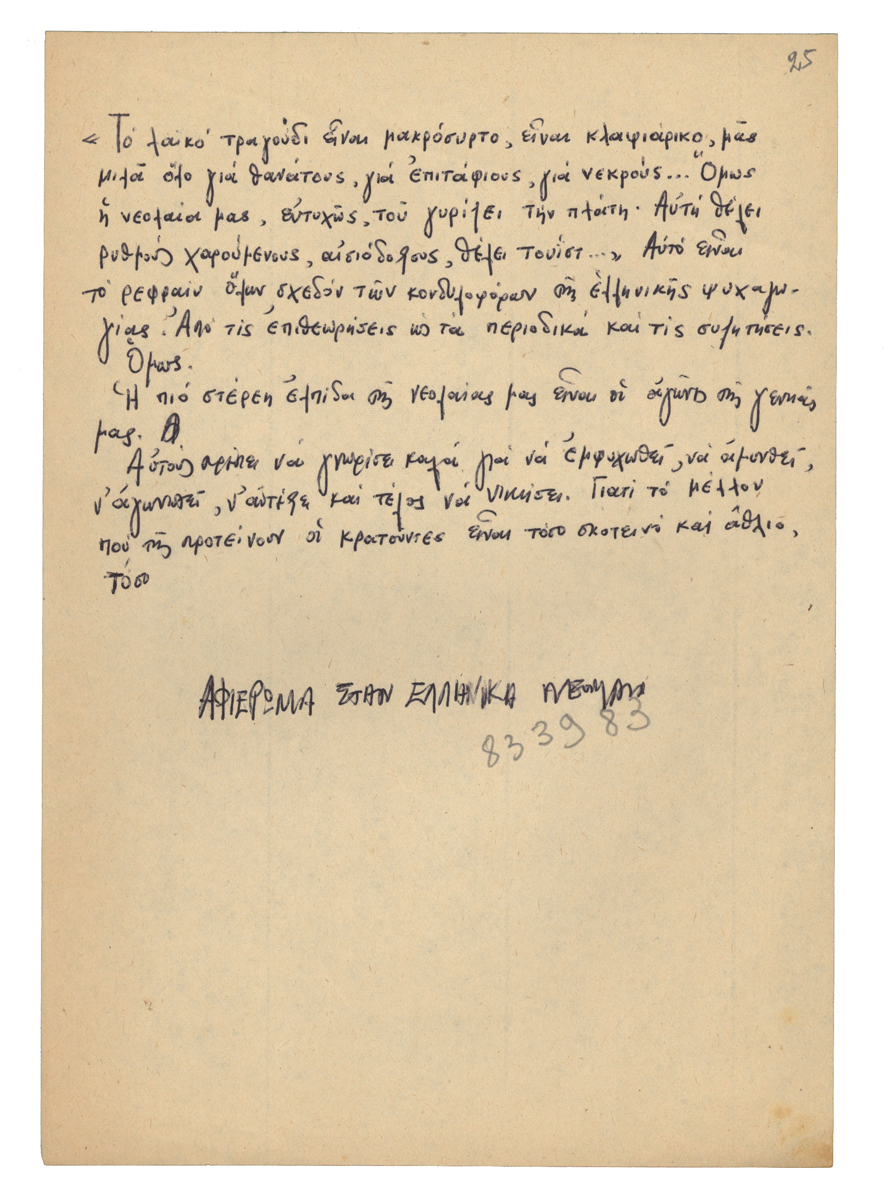 25
« Τό λαϊκό τραγούδι εἶναι μακρόσυρτο, εἶναι κλαψιάρικο, μᾶς
μιλᾶ ὅλο γιά θανάτους, γιά ἐπιτάφιους, γιά νεκρούς... Ὅμως
ἡ νεολαία μας, εὐτυχῶς, τοῦ γυρίζει τήν πλάτη. Αὐτή θέλει
ρυθμούς χαρούμενους, αἰσιόδοξους, θέλει τουίστ...» Αὐτό εἶναι
τό ρεφραίν ὅλων σχεδόν τῶν κονδυλοφόρων τῆς ἑλληνικῆς ψυχαγω-
γίας. Ἀπό τίς ἐπιθεωρήσεις ὡς τά περιοδικά καί τίς συζητήσεις.
Ὅμως.
Ἡ πιό στέρεη ἐλπίδα τῆς νεολαίας μας εἶναι οἱ ἀγῶνες τῆς γενιᾶς
μας.
Αὐτούς πρέπει νά γνωρίσει καλά γιά νά ἐμψυχωθεῖ, νά ἀμυνθεῖ,
ν' ἀγωνισθεῖ, ν' ἀντέξει καί τέλος νά νικήσει. Γιατί τό μέλλον
πού τῆς προτείνουν οἱ κρατοῦντες εἶναι τόσο σκοτεινό καί ἄθλιο,
τόσο
ΑΦΙΕΡΩΜΑ ΣΤΗΝ ΕΛΛΗΝΙΚΑ
833983